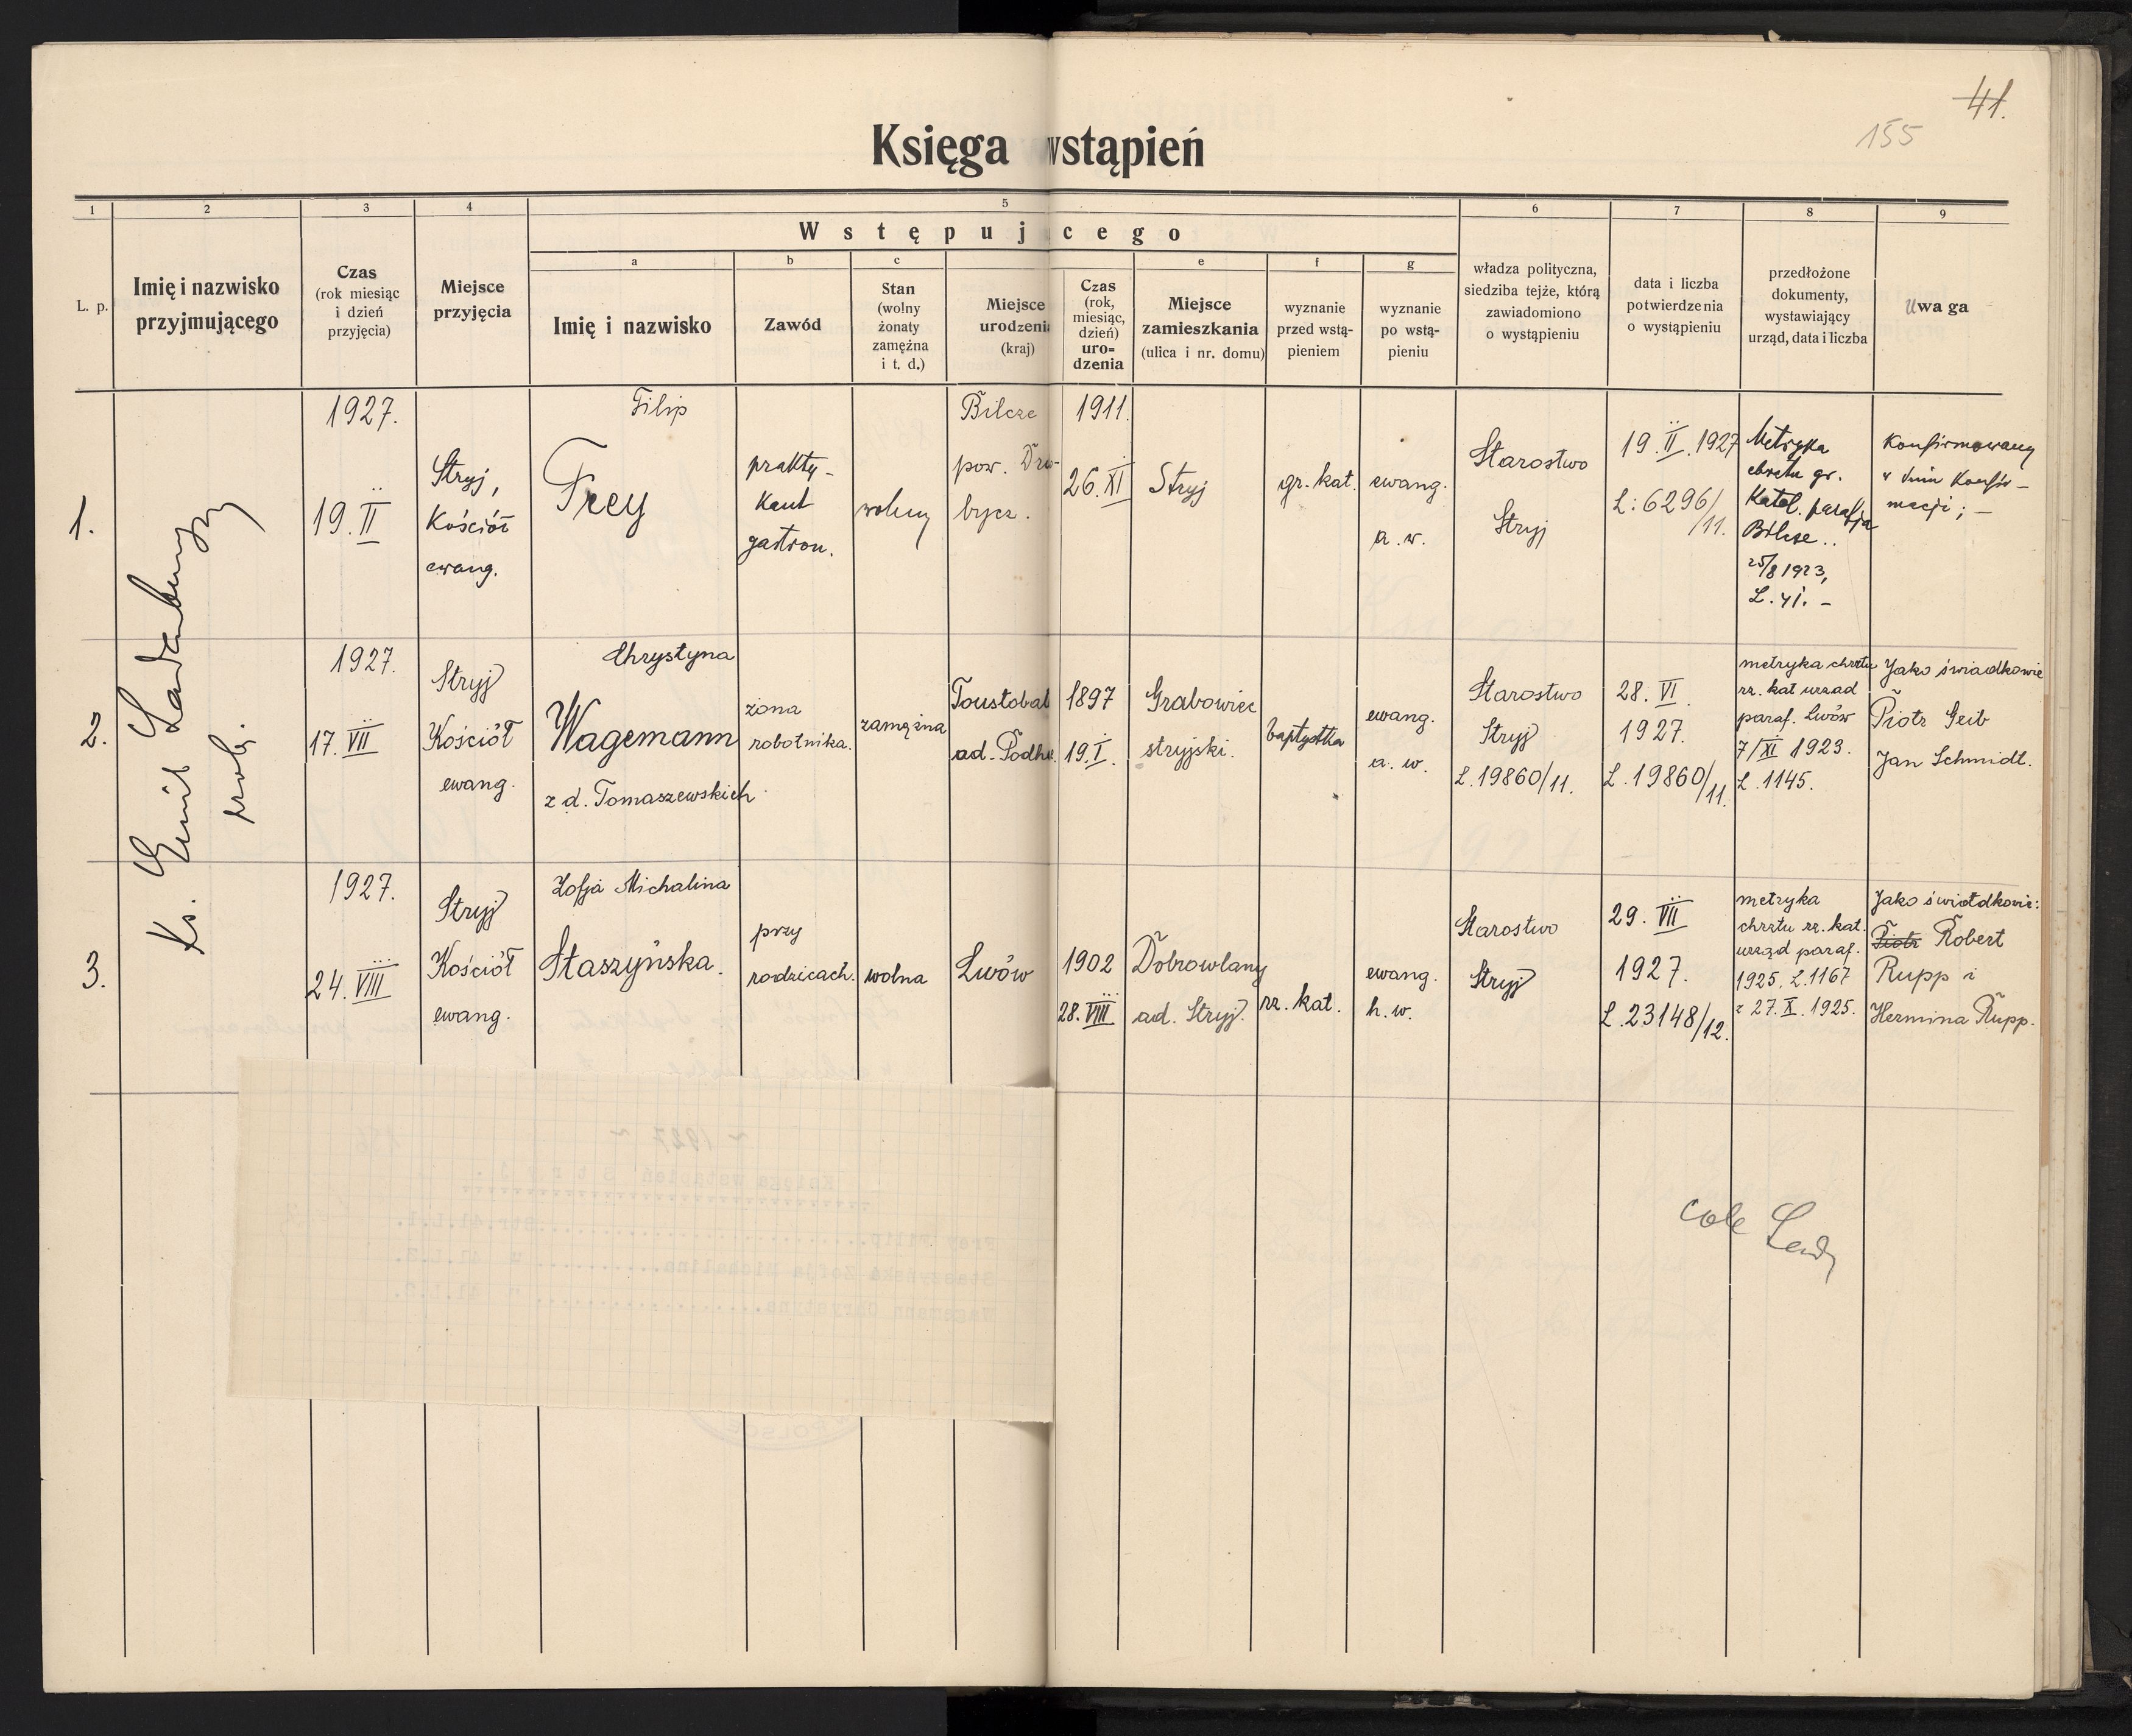 41.
155
Księga wstąpień
1
2
3
4
5
6
7
8
9
Wstępującego
a
b
c
e
f
g
L. p.
Imię i nazwisko
przyjmującego
Czas
(rok miesiąc
i dzień
przyjęcia)
Miejsce
przyjęcia
Imię i nazwisko
Zawód
Stan
(wolny
żonaty
zamężna
i t. d.)
Miejsce
urodzenia
(kraj)
Czas
(rok,
miesiąc,
dzień)
uro=
dzenia
Miejsce
zamieszkania
(ulica i nr. domu)
wyznanie
przed wstą-
pieniem
wyznanie
po wstą-
pieniu
władza polityczna,
siedziba tejże, którą
zawiadomiono
o wystąpieniu
data i liczba
potwierdzenia
o wystąpieniu
przedłożone
dokumenty,
wystawiający
urząd, data i liczba
Uwaga
Ks. Emil Ladenberger
prob.
1.
1927.
19. II
Stryj,
Kościół
ewang.
Filip
Frey
prakty-
kant
gastron.
wolny
Bilcze
pow. Dro-
bycz.
1911.
26. XI
Stryj
gr. kat.
ewang.
a. w.
Starostwo
Stryj
19. II. 1927
L: 6296/
/11.
Metryka
chrztu gr.
Katol. parafja
Bilcze..
25/8 1923,
L. 41. -
Konfirmowany
w dniu Konfir-
macji; -
2.
1927.
17. VII
Stryj
Kościół
ewang.
Chrystyna
Wagemann
z d. Tomaszewskich
żona
robotnika.
zamężna
Toustobab
ad. Podh.
1897
19. I.
Grabowiec
stryjski.
baptystka
ewang.
a. w.
Starostwo
Stryj
L. 19860/11.
28. VI.
1927.
L. 19860/11.
metryka chrztu
rz. kat urzad
paraf. Lwów
7/XI 1923.
L. 1145.
Jako świadkowie
Piotr Geib
Jan Schmidt.
3.
1927.
24. VIII
Stryj
Kościół
ewang.
Zofja Michalina
Staszyńska.
przy
rodzicach.
wolna
Lwów
1902
28. VIII
Dobrowlany
ad. Stryj.
rz. kat.
ewang.
h. w.
Starostwo
Stryj
29. VII
1927.
L. 23148/12.
metryka
chrztu rz. kat.
urząd paraf.
1925. L. 1167
z 27. X. 1925.
Jako świadkowie:
Piotr Robert
Rupp i
Hermina Rupp.
~ 1927 ~
Księga wstąpień Stryj.
Frey Filip..........Str.41.L.1.
Staszyńska Zofja Michalina.......... " 41.L.3.
Wagemann Chrystyna.......... " 41.L.2.